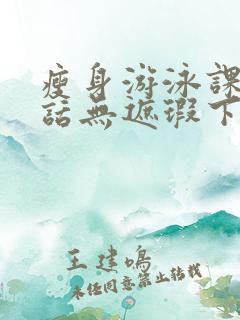 瘦身游泳課
話無遮瑕下
王建鳴
未經同意禁止轉載